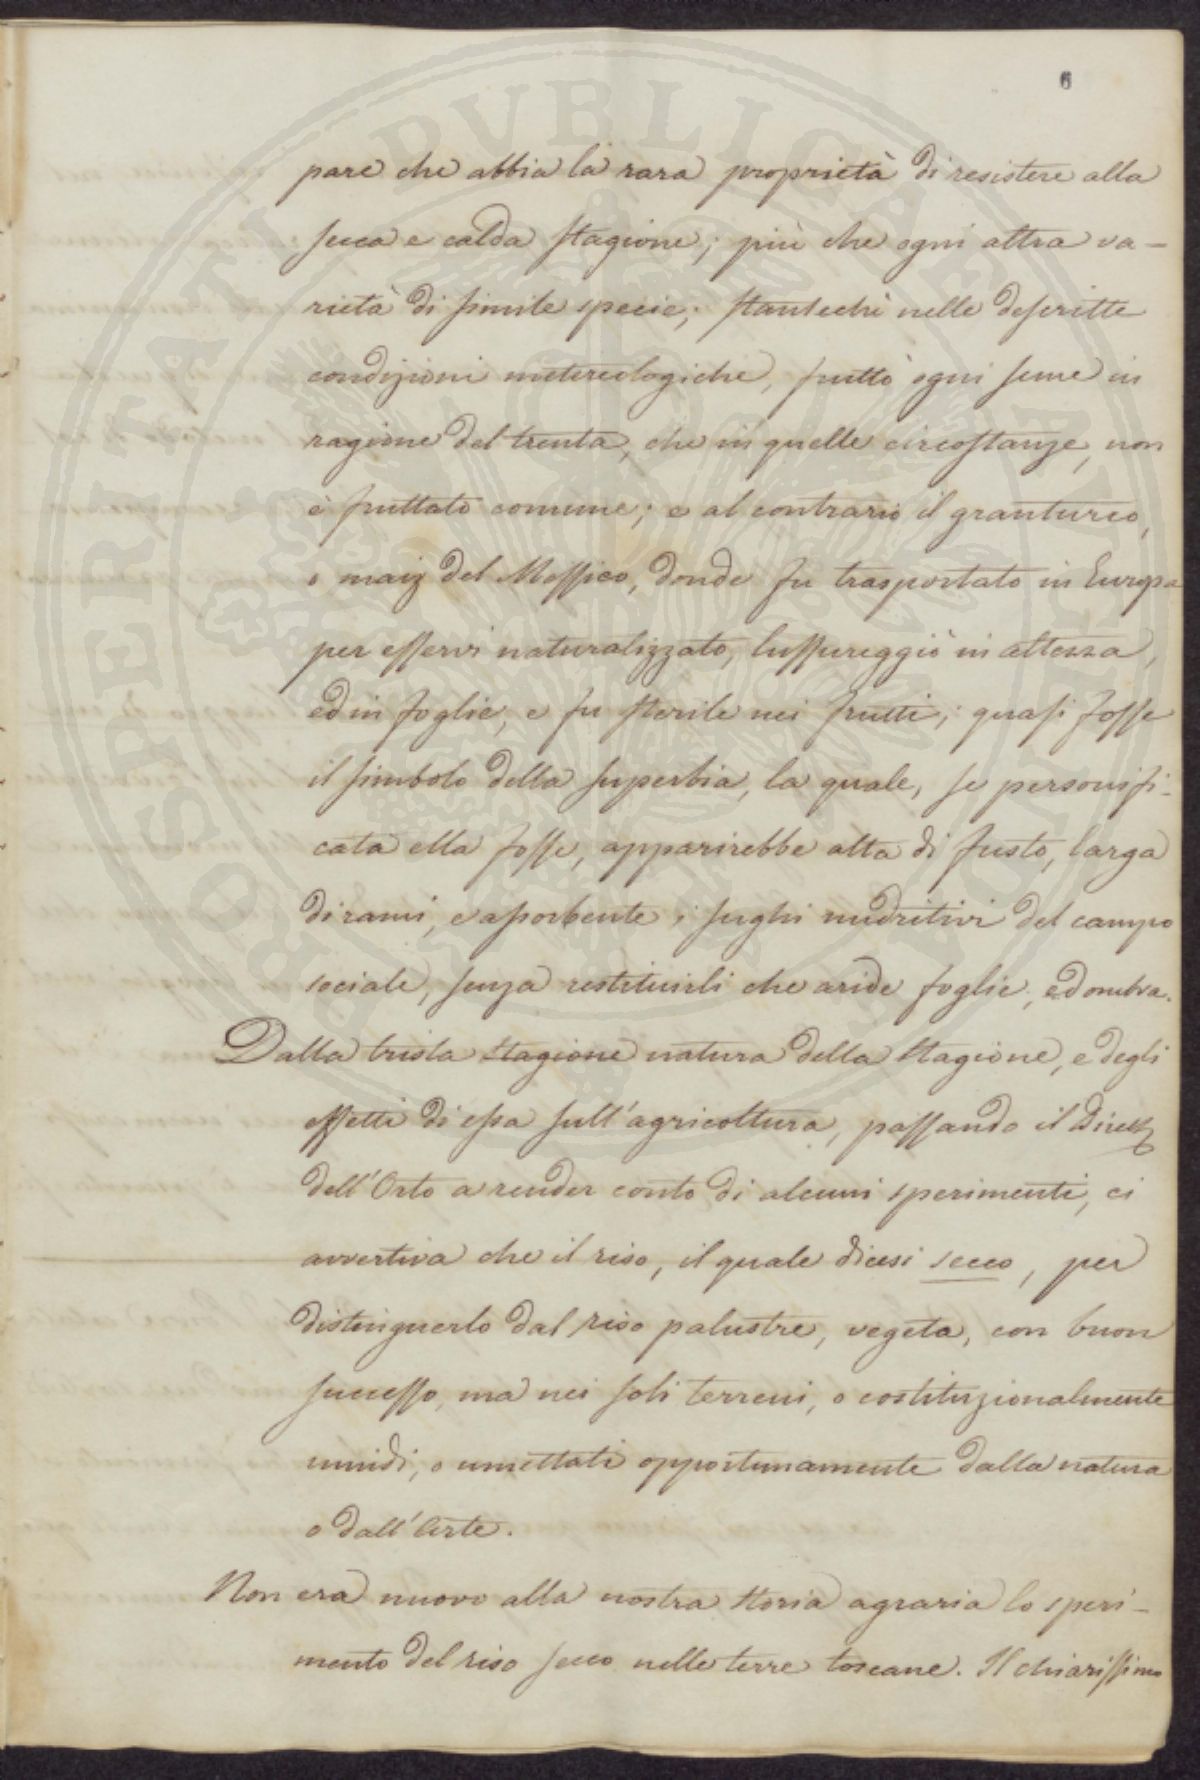 6
pare che abbia la rara proprietà di resistere alla
secca e calda stagione; più che ogni altra va-
rietà di simile specie; stantechè nelle descritte
condizioni metereologiche, fruttò ogni seme in
ragione del trenta, che in quelle circostanze, non
è fruttato comune; e al contrario il granturco,
o maiz del Messico, donde fu trasportato in Europa
per esservi naturalizzato, lussureggiò in altezza,
ed in foglie, e fu sterile nei frutti; quasi fosse
il simbolo della superbia, la quale, se personifi-
cata ella fosse, apparirebbe alta di fusto, larga
di rami, e asorbente i sughi nudritivi del campo
sociale, senza restituirli che aride foglie, ed ombra.
Dalla trista stagione natura della stagione, e degli
effetti di essa sull'agricoltura, passando il Dirett
dell'Orto a render conto di alcuni sperimenti, ci
avvertiva che il riso, il quale dicesi secco, per
distinguerlo dal riso palustre, vegeta, con buon
successo, ma nei soli terreni, o costituzionalmente
umidi, o umettati opportunamente dalla natura
o dall'Arte.
Non era nuovo alla nostra storia agraria lo speri-
mento del riso secco nelle terre toscane. Il chiarissimo
PROSPERITATI PVBLICAE